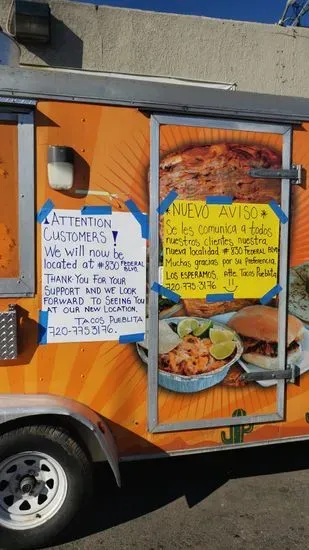 ATTENTION
CUSTOMERS!
We will now be
located at #830 FEDERAL
BLVD.
THANK YOU FOR YOUR
SUPPORT AND WE LOOK
FORWARD TO SEEING YOU
AT OUR NEW LOCATION.
TACOS PUEBLITA
720-775.3176.
*NUEVO AVISO*
Se les comunica a todos
nuestros clientes nuestra
nueva localidad #830 FEDERAL BLVD.
Muchas gracias por su preferencia.
LOS ESPERAMOS, Atte. Tacos Pueblita
720-775-3176